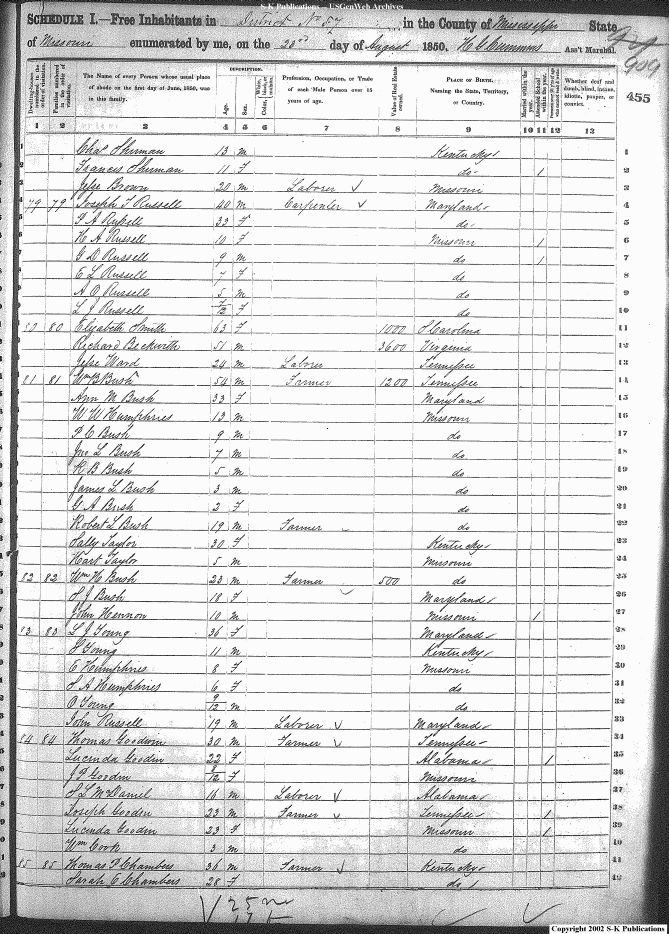 S-K Publications - USGenWeb Archives
SCHEDULE I.—Free Inhabitants in District No 57 in the County of Mississippi State
of Missouri enumerated by me, on the 20th day of August 1850. Ass't Marshal.
909
455
Dwelling-houses numbered in the order of visitation.
Families numbered in the order of visitation.
The Name of every Person whose usual place of abode on the first day of June, 1850, was in this family.
DESCRIPTION.
Age.
Sex.
Color, White, black, or mulatto.
Profession, Occupation, or Trade of each Male Person over 15 years of age.
Value of Real Estate owned.
PLACE OF BIRTH, Naming the State, Territory, or Country.
Married within the year.
Attended School within the year.
Whether deaf and dumb, blind, insane, idiotic, pauper, or convict.
1 2 3 4 5 6 7 8 9 10 11 12 13
1 Chas Sherman 13 m Kentucky 1
2 Frances Sherman 11 F do 1 2
3 Jesse Brown 20 m Laborer Missouri 3
4 79 79 Joseph T Russell 40 m Carpenter Maryland 4
5 S A Russell 33 F do 5
6 H A Russell 10 F Missouri 1 6
7 G D Russell 9 m do 1 7
8 E L Russell 7 F do 8
9 A O Russell 5 m do 9
10 L J Russell 7/12 F do 10
80 80 Elizabeth Smith 63 F 1000 S Carolina 11
Richard Beckwith 51 m 3600 Virginia 12
Jesse Ward 24 m Laborer Tennessee 13
81 81 Wm B Bush 54 m Farmer 1200 Tennessee 14
Ann M Bush 33 F Maryland 15
W W Humphries 13 m Missouri 16
P C Bush 9 m do 17
Jno L Bush 7 m do 18
R B Bush 5 m do 19
James L Bush 3 m do 20
G A Bush 2 F do 21
Robert L Bush 19 m Farmer do 22
Sally Taylor 30 F Kentucky 23
Hart Taylor 5 m Missouri 24
82 82 Wm H Bush 23 m Farmer 500 do 25
S J Bush 18 F Maryland 26
John Hennon 10 m Missouri 1 27
83 83 L J Young 36 F Maryland 28
S Young 11 m Kentucky 29
E Humphries 8 F Missouri 30
S A Humphries 6 F do 31
O Young 9/12 m do 32
John Russell 19 m Laborer Maryland 33
84 84 Thomas Goodwin 30 m Farmer Tennessee 34
Lucinda Goodin 22 F Alabama 1 35
J P Goodin 8/12 F Missouri 36
S L McDaniel 16 m Laborer Alabama 37
Joseph Goodin 23 m Farmer Tennessee 1 38
Lucinda Goodin 23 F Missouri 1 39
Wm Cook 3 m do 40
85 85 Thomas P Chambers 36 m Farmer Kentucky 41
Sarah E Chambers 28 F do 42
25 m
17 f
Copyright 2002 S-K Publications